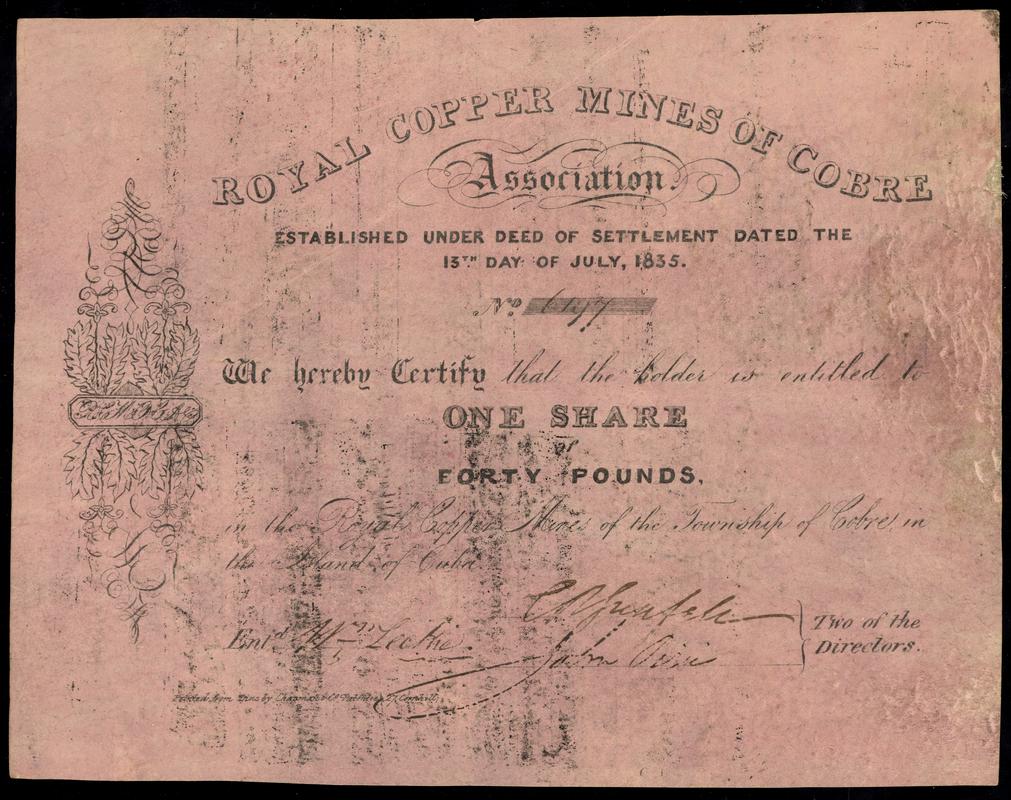 ROYAL COPPER MINES OF COBRE
Association.
ESTABLISHED UNDER DEED OF SETTLEMENT DATED THE
13TH DAY OF JULY, 1835.
No 6197
We hereby Certify that the holder is entitled to
ONE SHARE
of
FORTY POUNDS,
in the Royal Copper Mines of the Township of Cobre, in
the Island of Cuba
Entd Wm Leckie
Two of the
Directors.
Printed from Zinc by Chapman & Co